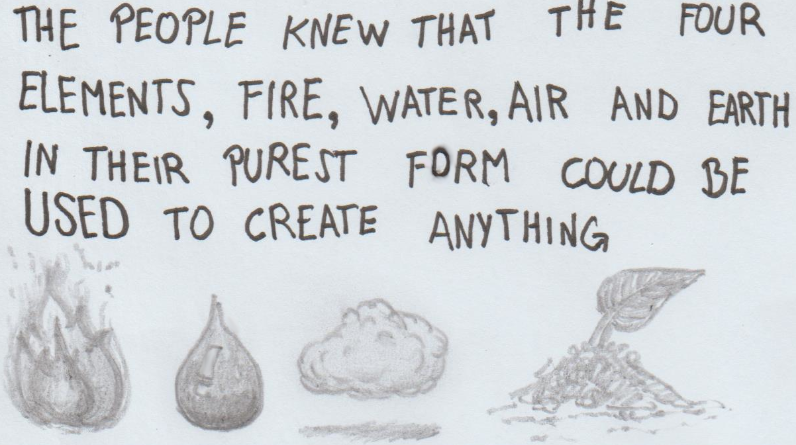 THE PEOPLE KNEW THAT THE FOUR
ELEMENTS, FIRE, WATER, AIR AND EARTH
IN THEIR PUREST FORM COULD BE
USED TO CREATE ANYTHING